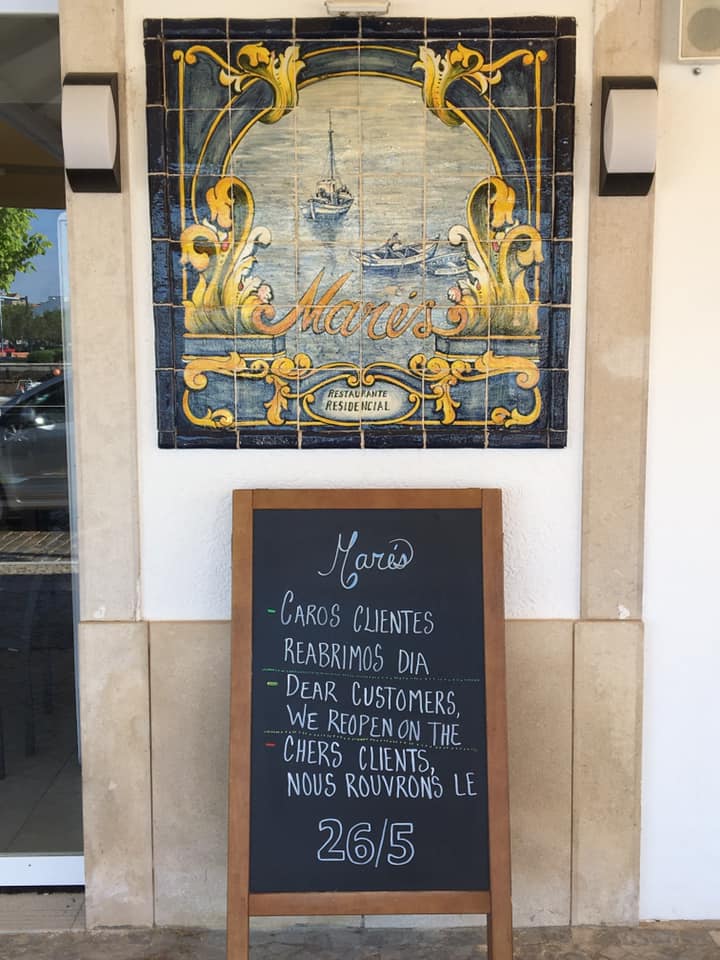 Marés
RESTAURANTE
RESIDENCIAL
Marés
- CAROS CLIENTES
REABRIMOS DIA
- DEAR CUSTOMERS,
WE REOPEN ON THE
- CHERS CLIENTS,
NOUS ROUVRONS LE
26/5